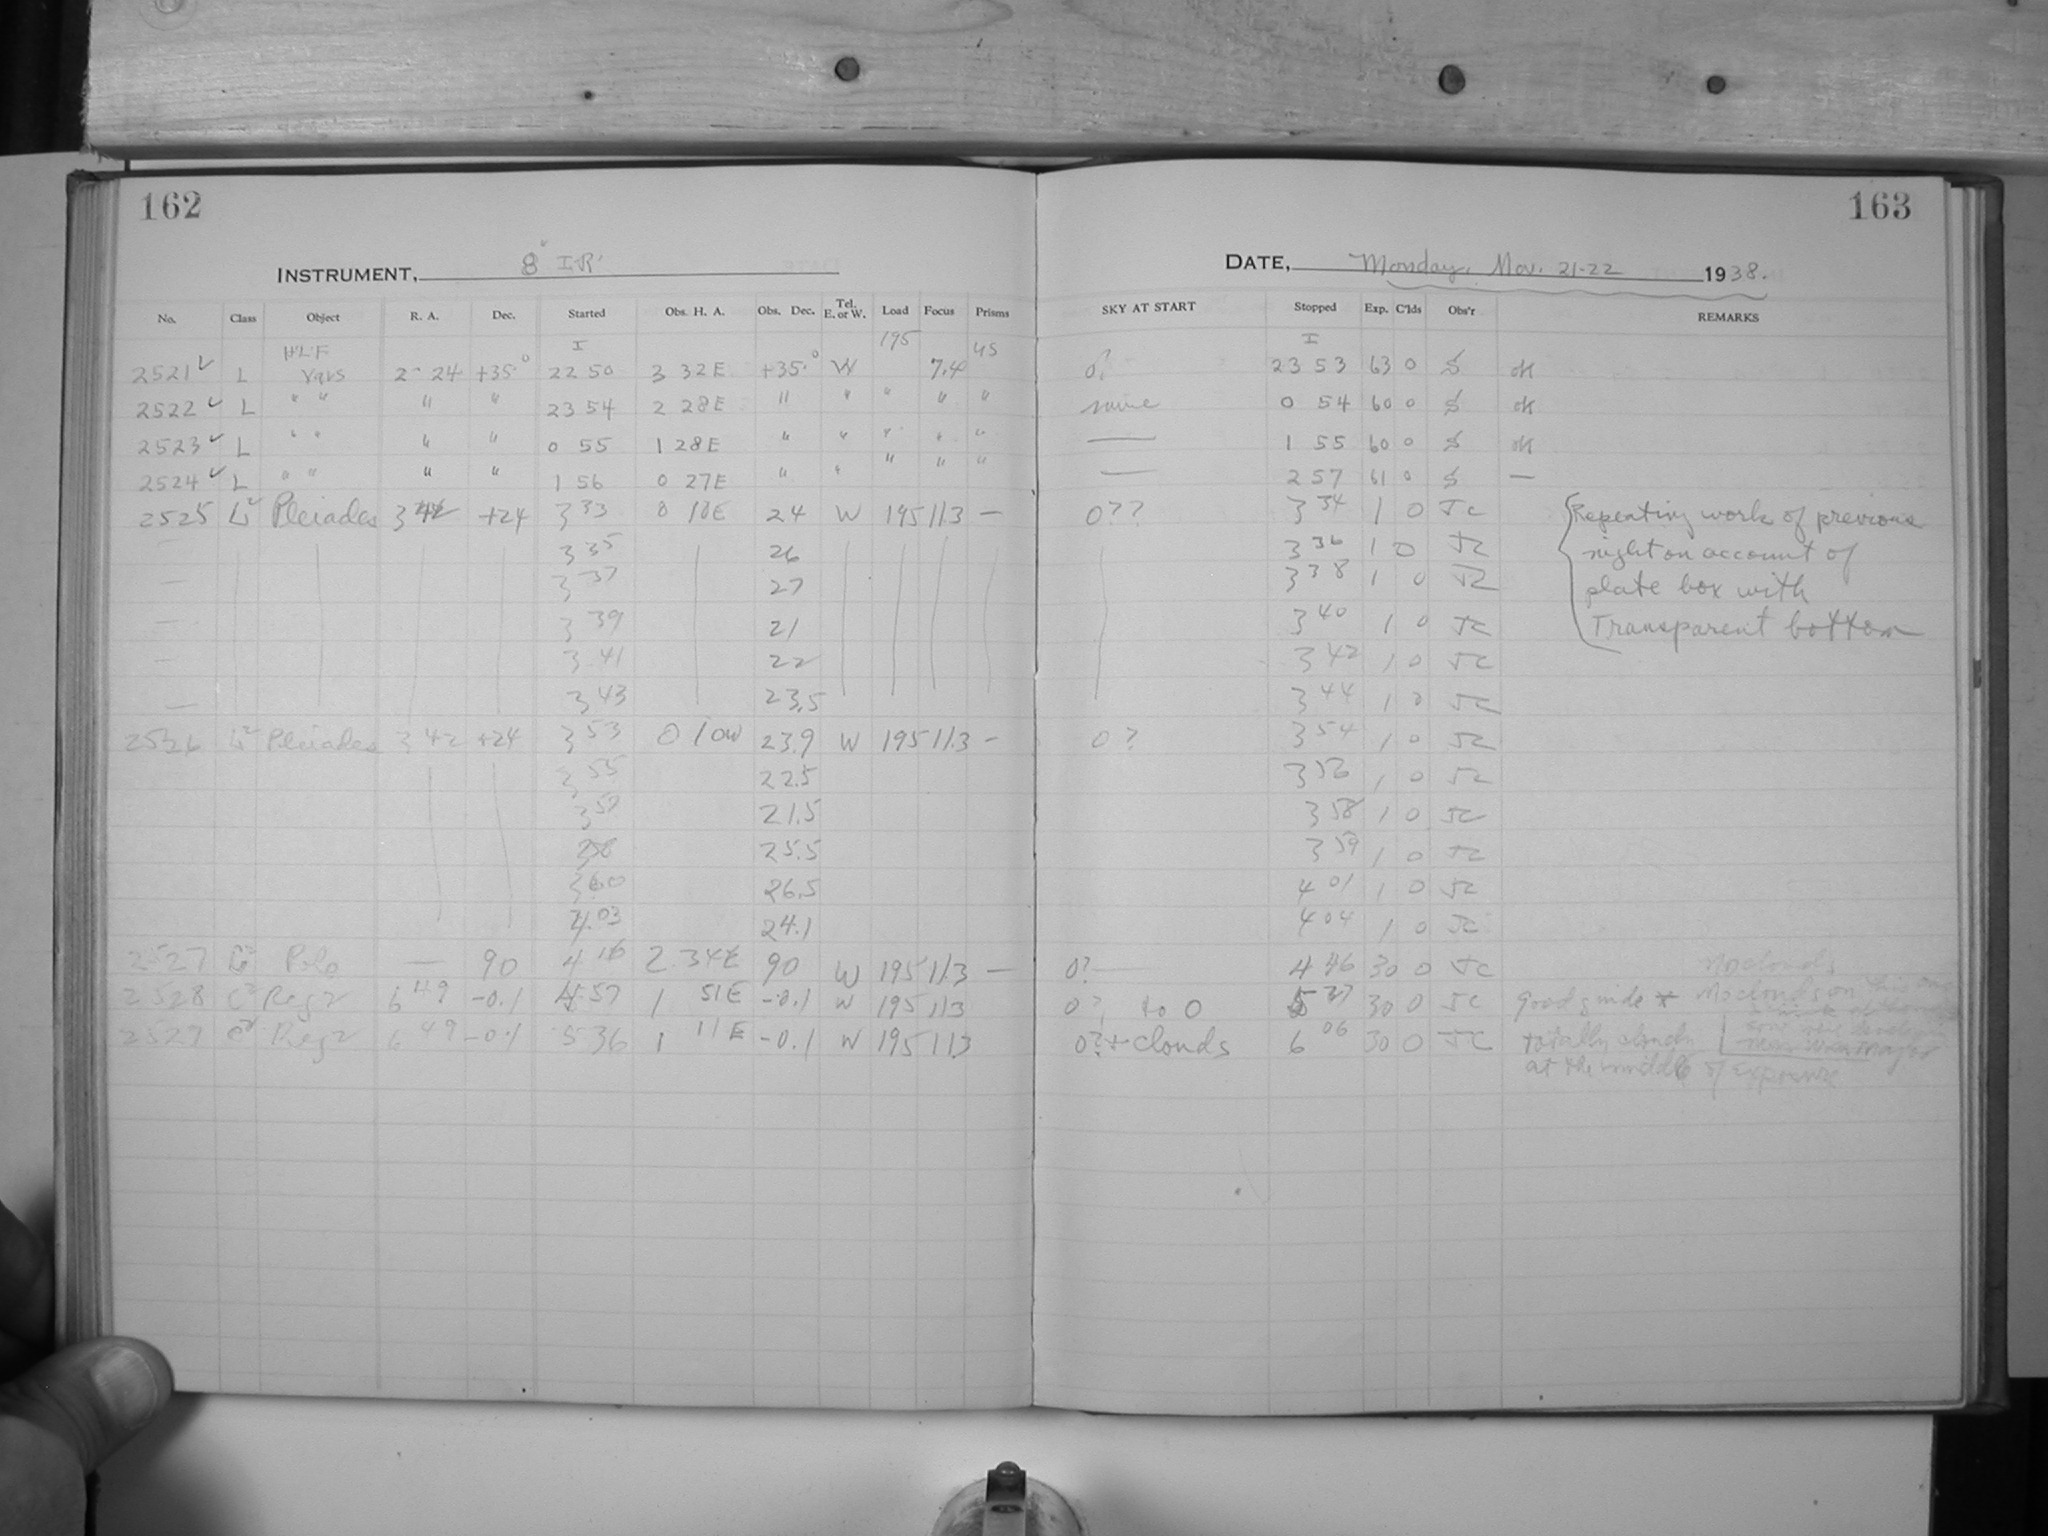 162
163
INSTRUMENT, 8" I.R.
DATE, Monday, Nov. 21-22 1938.
No. Class Object R. A. Dec. Started Obs. H. A. Obs. Dec. Tel. E. or W. Load Focus Prisms SKY AT START Stopped Exp. C'lds Obs'r REMARKS
2521 L Vars 2 24 +35° 22 50 3 32E +35° W 195 7.4 0? 23 53 63 0 S ok
2522 L " " " " 23 54 2 28E " " " " " same 0 54 60 0 S ok
2523 L " " " " 0 55 1 28E " " " " " — 1 55 60 0 S ok
2524 L " " " " 1 56 0 27E " " " " " — 2 57 61 0 S —
2525 Pleiades +24 3 33 0 10E 24 W 195 11.3 — 0?? 3 34 1 0 JC Repeating work of previous
— 3 35 26 3 36 1 0 JC night on account of
— 3 37 27 3 38 1 0 JC plate box with
— 3 39 21 3 40 1 0 JC Transparent bottom
— 3 41 22 3 42 1 0 JC
— 3 43 23.5 3 44 1 0 JC
2526 Pleiades 3 42 +24 3 53 0 10W 23.9 W 195 11.3 — 0? 3 54 1 0 JC
3 55 22.5 3 56 1 0 JC
3 57 21.5 3 58 1 0 JC
25.5 3 59 1 0 JC
26.5 4 01 1 0 JC
4.03 24.1 4 04 1 0 JC
2527 Pole — 90 4 16 2 34E 90 W 195 11.3 — 0? — 4 46 30 0 JC No clouds
2528 C² Reg 2 6 49 -0.1 4 57 1 51E -0.1 W 195 11.3 0? to 0 5 27 30 0 JC Good guide * No clouds on this one
2529 C² Reg 2 6 49 -0.1 5 36 1 11E -0.1 W 195 11.3 0?+clouds 6 06 30 0 JC totally cloudy
at the middle of exposure